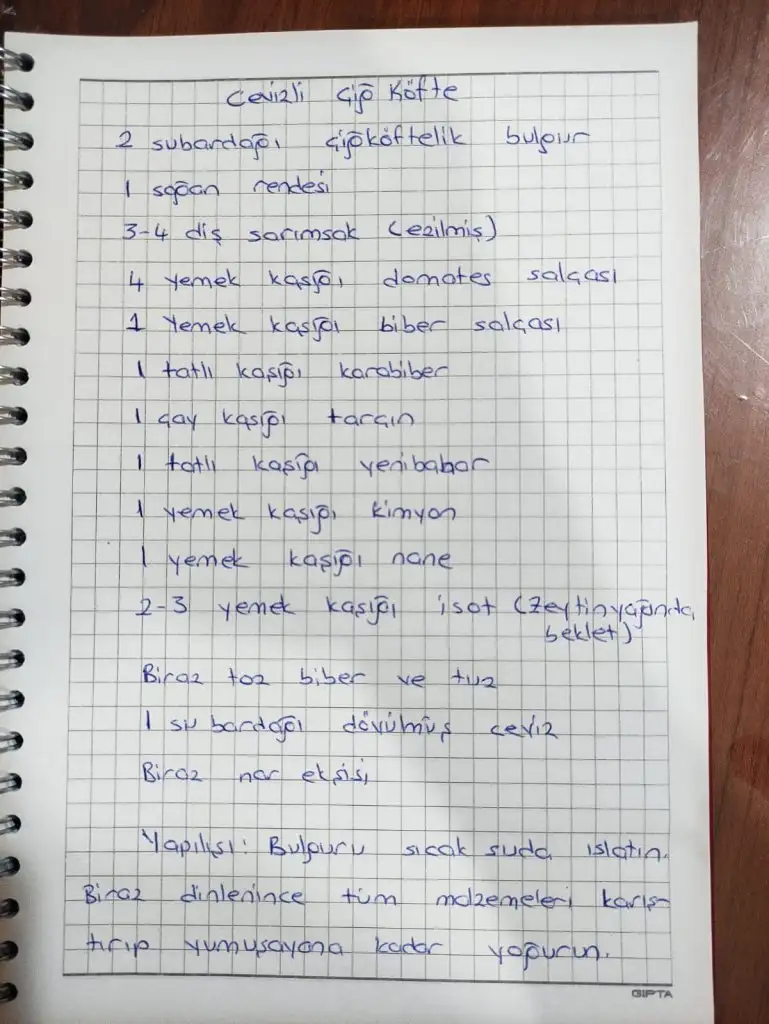 Cevizli Çiğ Köfte
2 subardağı çiğköftelik bulgur
1 soğan rendesi
3-4 diş sarımsak (ezilmiş)
4 yemek kaşığı domates salçası
1 Yemek kaşığı biber salçası
1 tatlı kaşığı karabiber
1 çay kaşığı tarçın
1 tatlı kaşığı yenibahar
1 yemek kaşığı kimyon
1 yemek kaşığı nane
2-3 yemek kaşığı isot (zeytinyağında
beklet)
Biraz toz biber ve tuz
1 su bardağı dövülmüş ceviz
Biraz nar ekşisi
Yapılışı: Bulguru sıcak suda ıslatın.
Biraz dinlenince tüm malzemeleri karış-
tırıp yumuşayana kadar yoğurun.
GIPTA